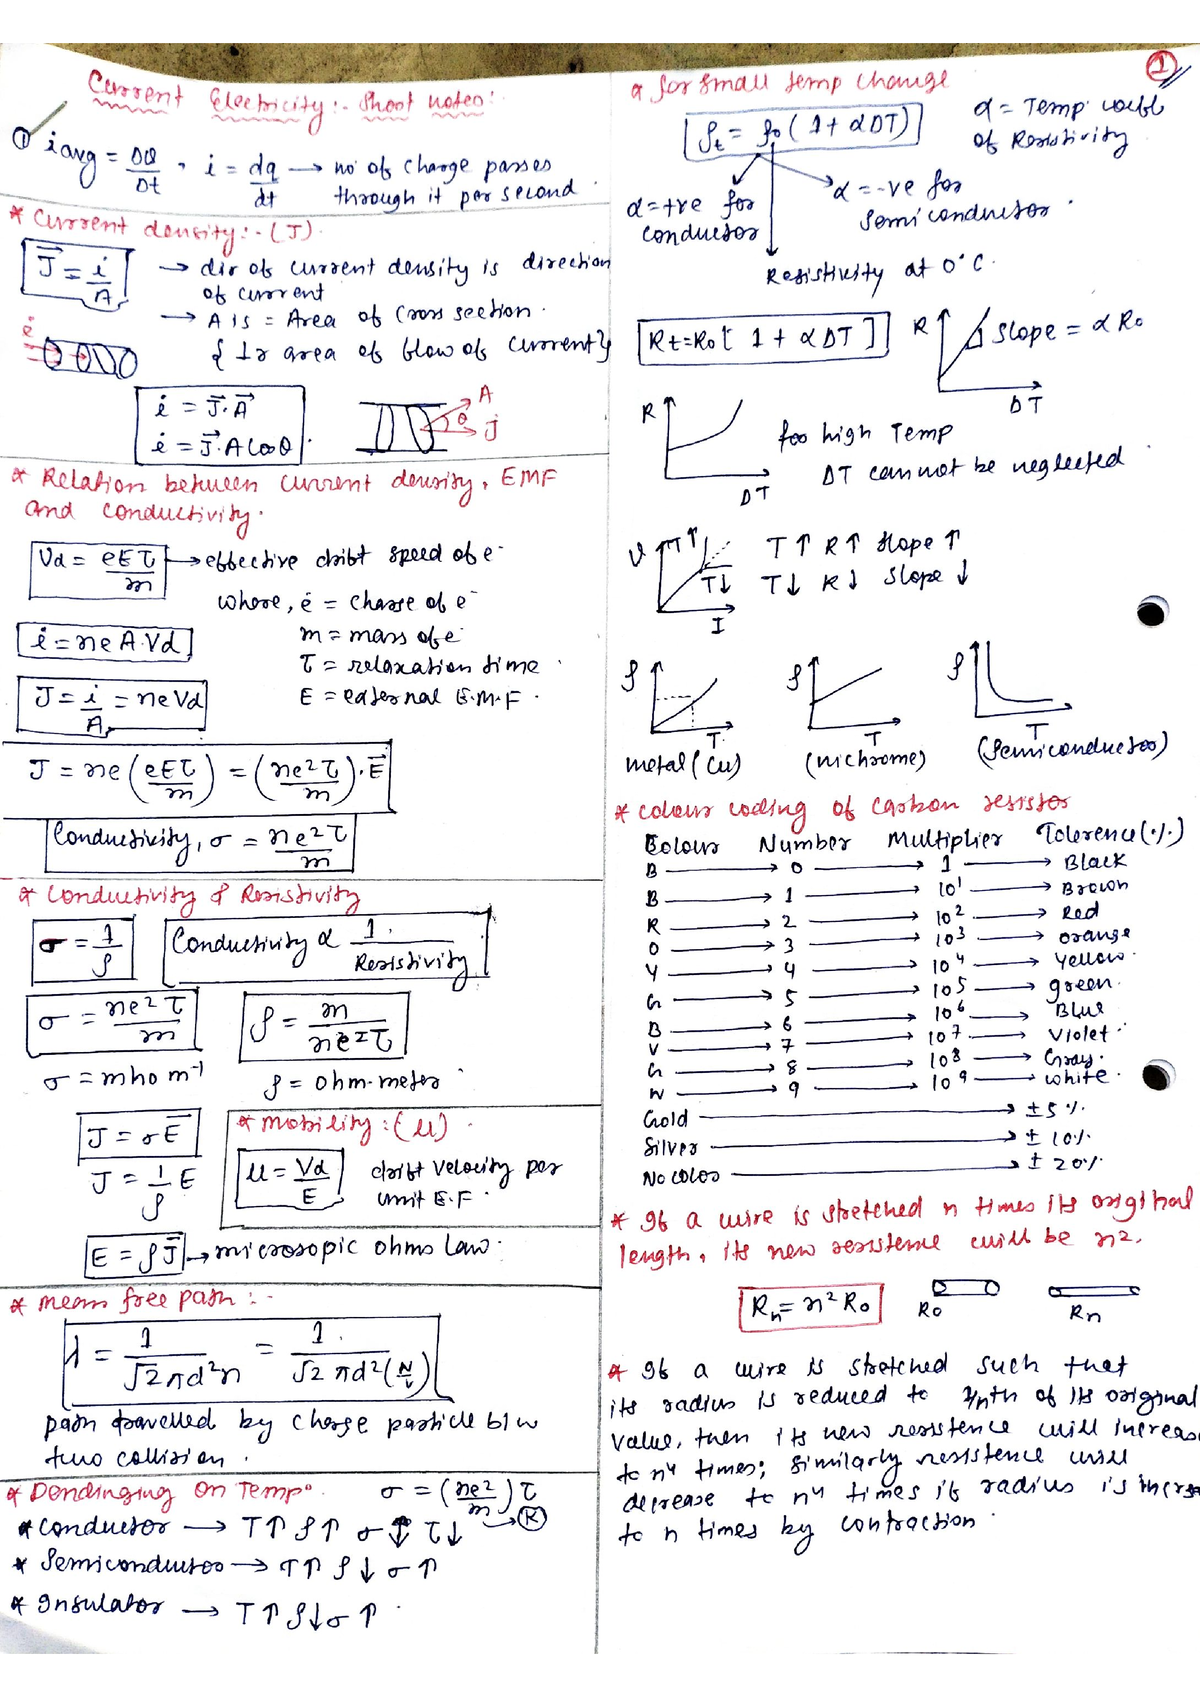 Current Electricity:- Short notes:-
① i avg = ΔQ/Δt , i = dq/dt → no of charge passes
through it per second.
* Current density:- (J)
J⃗ = i/A → dir of current density is direction
of current
→ A is = Area of cross section.
{ Ir area of flow of current}
i = J⃗.A⃗
i = J⃗.A Cos θ
A
θ
J
* Relation between current density, EMF
and conductivity.
Vd = eEτ/m → effective drift speed of e-
where, e = charge of e-
i = neA.Vd
m = mass of e-
τ = relaxation time
J = i/A = neVd
E = external E.M.F.
J = ne(eEτ/m) = (ne2τ/m).E⃗
Conductivity, σ = ne2τ/m
* Conductivity & Resistivity
σ = 1/ρ
Conductivity α 1/Resistivity
σ = ne2τ/m
ρ = m/ne2τ
σ = mho m-1
ρ = ohm-meter
J = σE⃗
J = 1/ρ E
* Mobility:(μ)
μ = Vd/E drift velocity per
unit E.F.
E = ρJ⃗ → microsopic ohms law.
* mean free path:-
λ = 1/√2πd²n = 1/√2πd²(N/V)
path travelled by charge particle b/w
two collision.
* Dendinging on Temp°. σ = (ne2/m)τ
→ (K)
* Conductor → T↑ ρ↑ σ↓ τ↓
* Semiconductoo → T↑ ρ↓ σ↑
* Insulator → T↑ ρ↓ σ↑
①
* for small temp change
ρt = ρo(1+αDT)
α = Temp. coeff
of Resistivity
α=+ve for
conductor
α=-ve for
semiconductor.
Resistivity at 0°C.
Rt=Ro[1+αDT]
R
Slope = αRo
DT
R
DT
foo high Temp
DT cannot be neglected
V
T↑
T↓
I
T↑ R↑ slope↑
T↓ R↓ Slope↓
ρ
T
metal(Cu)
ρ
T
(nichrome)
ρ
T
(Semiconductoo)
* colour coding of carbon resistor
Colour Number Multiplier Tolerence(%)
B → 0 → 1 → Black
B → 1 → 10¹ → Brown
R → 2 → 10² → Red
O → 3 → 10³ → orange
Y → 4 → 10⁴ → Yellow.
G → 5 → 10⁵ → green.
B → 6 → 10⁶ → Blue
V → 7 → 10⁷ → Violet
G → 8 → 10⁸ → Gray.
W → 9 → 10⁹ → white.
Gold → ±5%.
Silver → ±10%.
No color → ±20%.
* If a wire is stretched n times its original
length, its new resistence will be n2.
Rn = n²Ro
Ro
Rn
* If a wire is stretched such that
its radius is reduced to 1/nth of its original
value, then its new resistence will increas
to n4 times; similarly resistence will
decrease to n4 times if radius is incrsa
to n times by contraction.